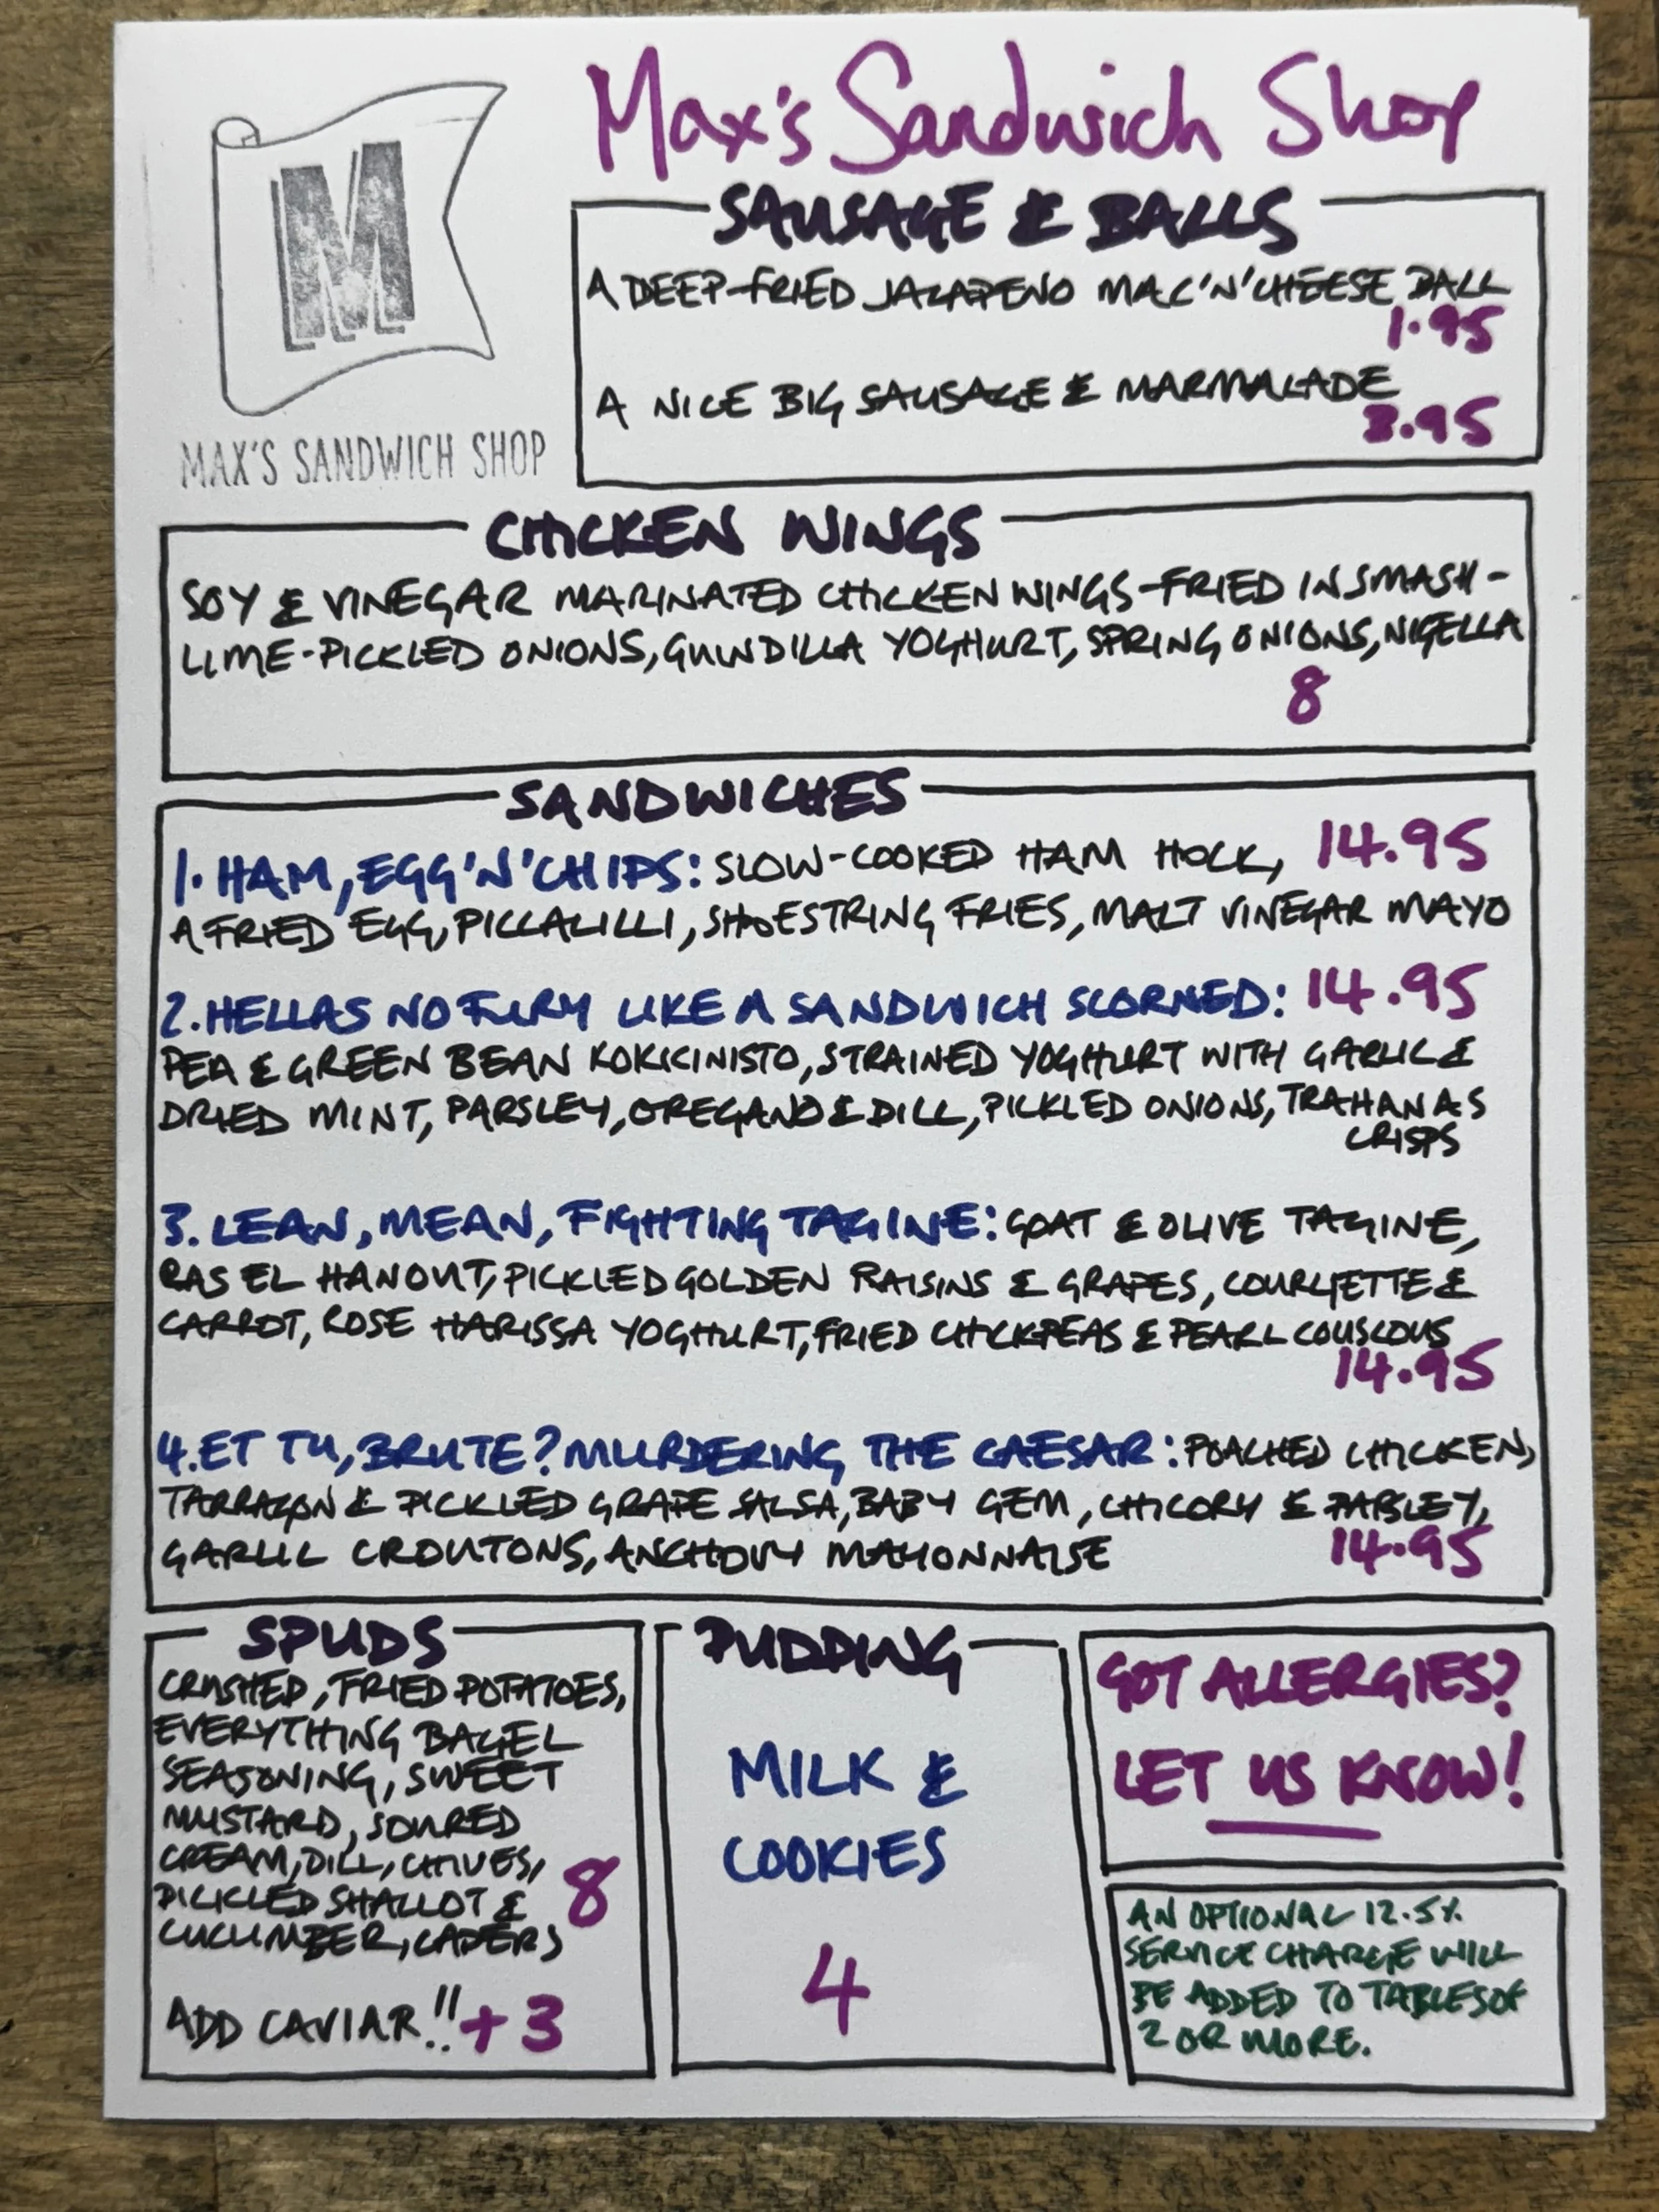 Max's Sandwich Shop
M
MAX'S SANDWICH SHOP
SAUSAGE & BALLS
A DEEP-FRIED JALAPENO MAC'N'CHEESE BALL
1.95
A NICE BIG SAUSAGE & MARMALADE
3.95
CHICKEN WINGS
SOY & VINEGAR MARINATED CHICKEN WINGS-FRIED IN SMASH-
LIME-PICKLED ONIONS, GUINDILLA YOGHURT, SPRING ONIONS, NIGELLA
8
SANDWICHES
1. HAM, EGG'N'CHIPS: SLOW-COOKED HAM HOCK, 14.95
A FRIED EGG, PICCALILLI, SHOESTRING FRIES, MALT VINEGAR MAYO
2. HELLAS NO FURY LIKE A SANDWICH SCORNED: 14.95
PEA & GREEN BEAN KOKKINISTO, STRAINED YOGHURT WITH GARLIC &
DRIED MINT, PARSLEY, OREGANO & DILL, PICKLED ONIONS, TRAHANAS
CRISPS
3. LEAN, MEAN, FIGHTING TAGINE: GOAT & OLIVE TAGINE,
RAS EL HANOUT, PICKLED GOLDEN RAISINS & GRAPES, COURGETTE &
CARROT, ROSE HARISSA YOGHURT, FRIED CHICKPEAS & PEARL COUSCOUS
14.95
4. ET TU, BRUTE? MURDERING THE CAESAR: POACHED CHICKEN,
TARRAGON & PICKLED GRAPE SALSA, BABY GEM, CHICORY & PARSLEY,
GARLIC CROUTONS, ANCHOVY MAYONNAISE 14.95
SPUDS
CRUSHED, FRIED POTATOES,
EVERYTHING BAGEL
SEASONING, SWEET
MUSTARD, SOURED
CREAM, DILL, CHIVES,
PICKLED SHALLOT & 8
CUCUMBER, CAPERS
ADD CAVIAR!! +3
PUDDING
MILK &
COOKIES
4
GOT ALLERGIES?
LET US KNOW!
AN OPTIONAL 12.5%
SERVICE CHARGE WILL
BE ADDED TO TABLES OF
2 OR MORE.